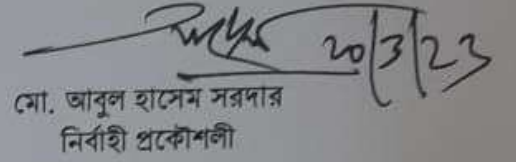 ২০/3/23
মো. আবুল হাসেম সরদার
নির্বাহী প্রকৌশলী